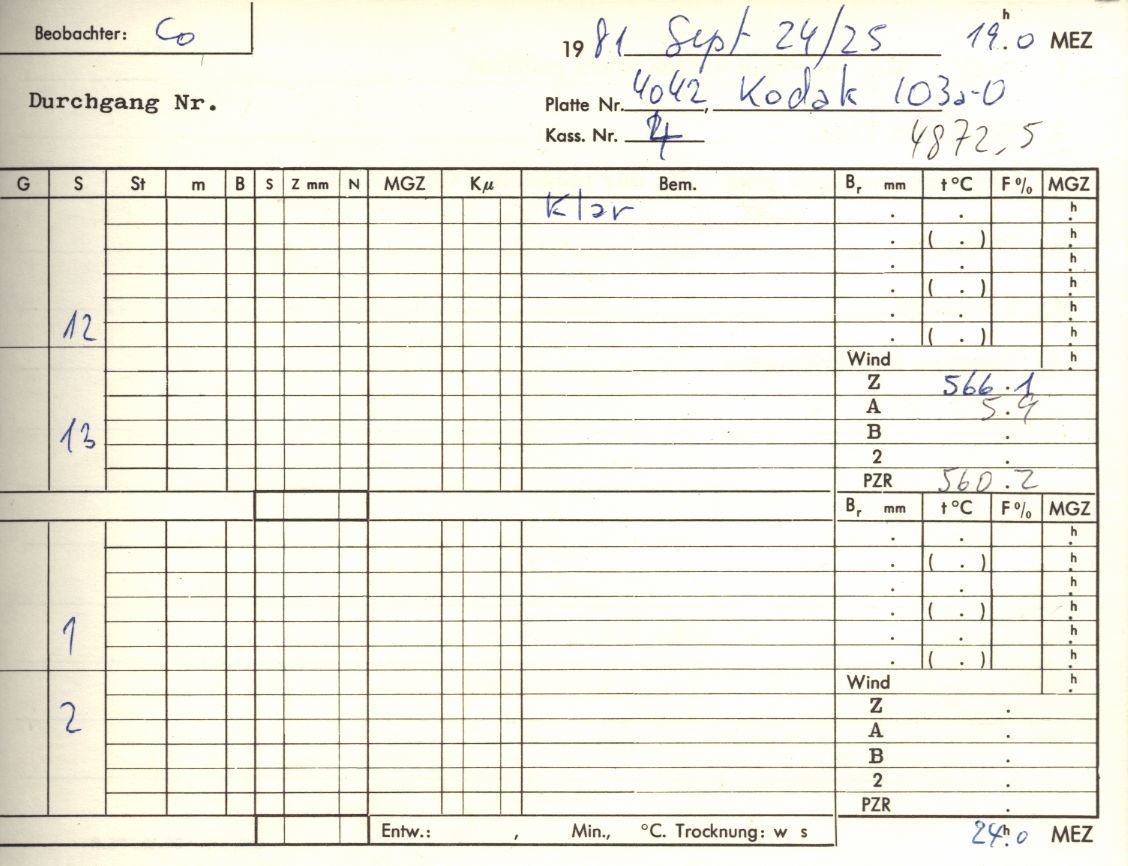 Beobachter: Co
19 81 Sept 24/25 19h.0 MEZ
Durchgang Nr.
Platte Nr. 4042, Kodak 103a-O
Kass. Nr. 4
4872,5
G S St m B S Z mm N MGZ Kμ Bem. Br mm t °C F % MGZ
Klar . . h.
. ( . ) h.
. . h.
. ( . ) h.
. . h.
12 . ( . ) h.
Wind h.
Z 566.1
A 5.9
13 B .
2 .
PZR 560.2
Br mm t °C F % MGZ
. . h.
. ( . ) h.
. . h.
. ( . ) h.
1 . . h.
. ( . ) h.
Wind h.
2 Z .
A .
B .
2 .
PZR .
Entw.: , Min., °C. Trocknung: w s 24h.0 MEZ